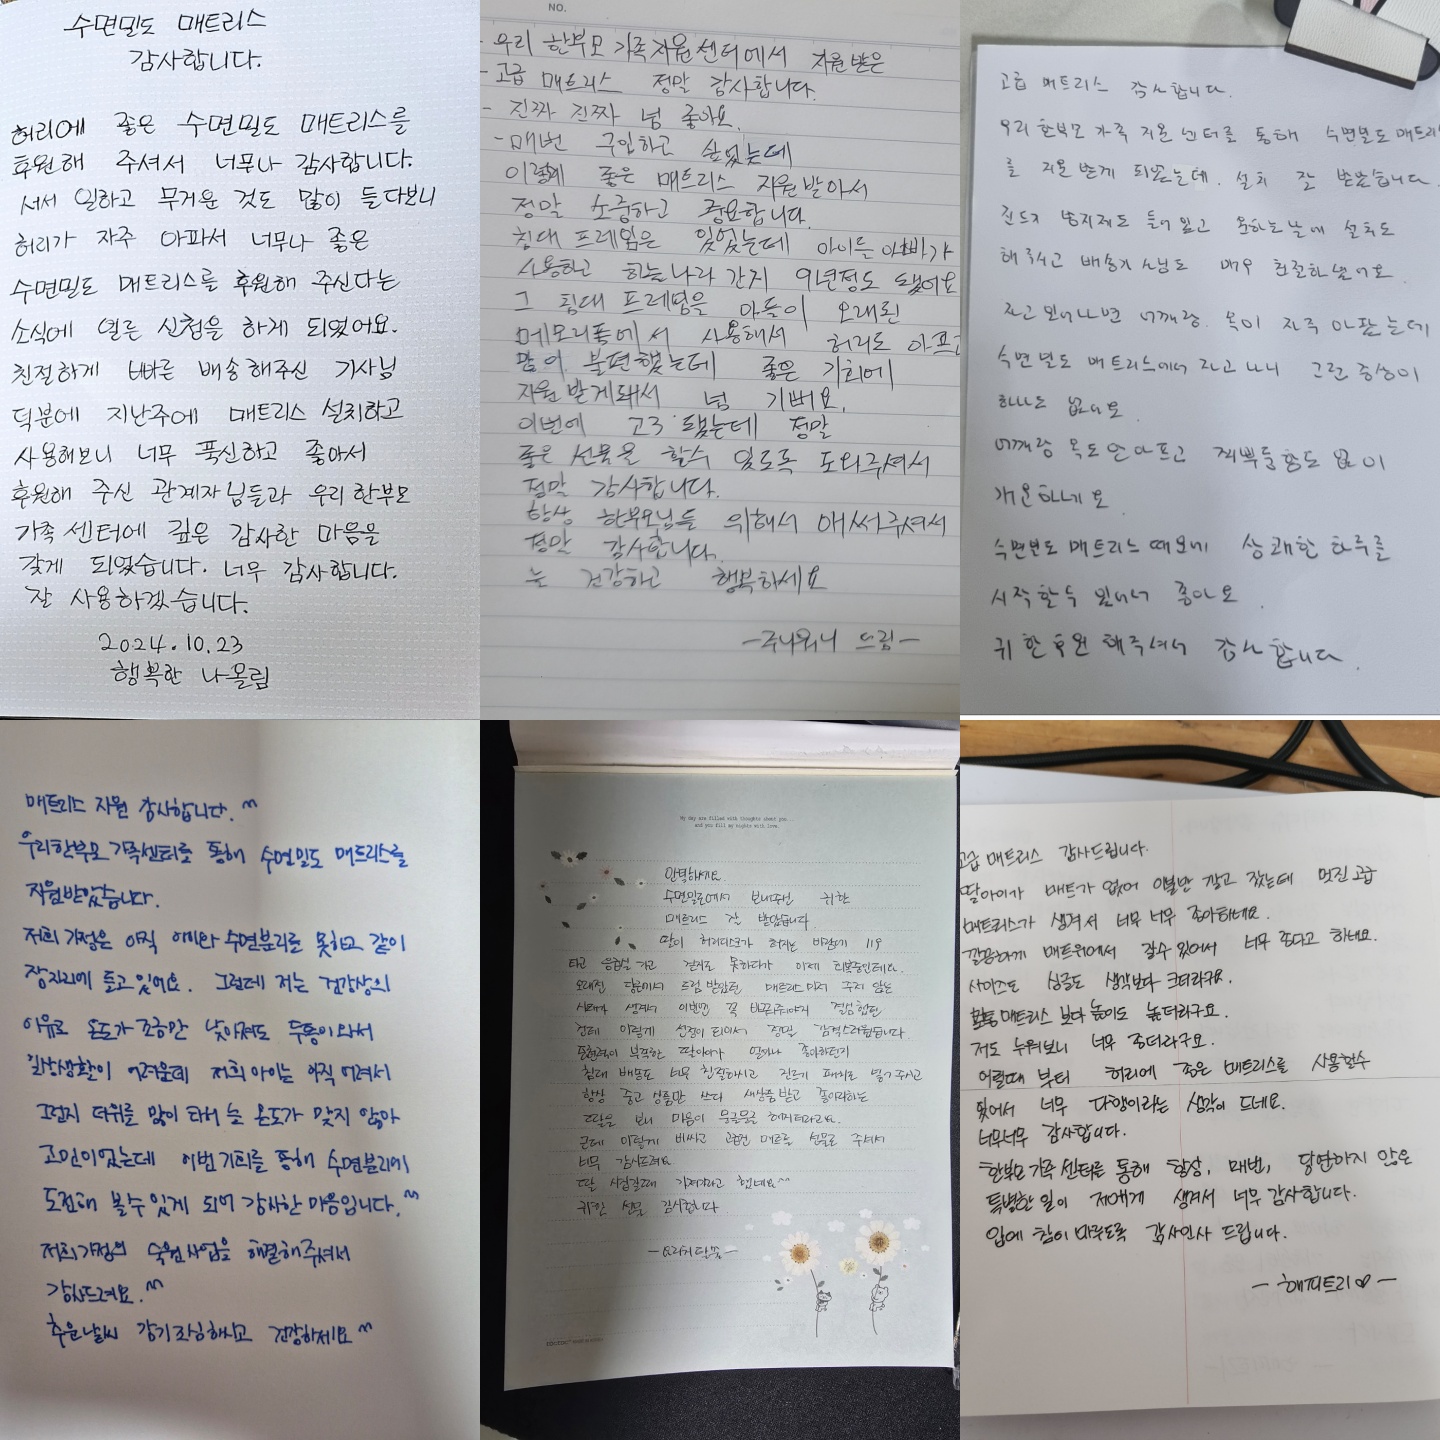 수면밀도 매트리스
감사합니다.
허리에 좋은 수면밀도 매트리스를
후원해 주셔서 너무나 감사합니다.
서서 일하고 무거운 것도 많이 들다보니
허리가 자주 아파서 너무나 좋은
수면밀도 매트리스를 후원해 주신다는
소식에 얼른 신청을 하게 되었어요.
친절하게 빠른 배송해주신 기사님
덕분에 지난주에 매트리스 설치하고
사용해보니 너무 푹신하고 좋아서
후원해 주신 관계자님들과 우리한부모
가족센터에 깊은 감사한 마음을
갖게 되었습니다. 너무 감사합니다.
잘 사용하겠습니다.
2024.10.23
행복한 나올림
NO.
- 우리 한부모 가족지원센터에서 지원받은
- 고급 매트리스 정말 감사합니다.
- 진짜 진짜 넘 좋아요.
- 매번 구입하고 싶었는데
이렇게 좋은 매트리스 지원받아서
정말 소중하고 중요합니다.
침대 프레임은 있었는데 아이들 아빠가
사용하고 하늘나라 간지 9년정도 됐어요
그 침대 프레임을 아들이 오래된
메모리폼에서 사용해서 허리도 아프고
많이 불편했는데 좋은 기회에
지원 받게돼서 넘 기뻐요.
이번에 고3 됐는데 정말
좋은 선물을 할수 있도록 도와주셔서
정말 감사합니다.
항상 한부모님들 위해서 애써주셔서
정말 감사합니다.
늘 건강하고 행복하세요
-주나워니 드림-
고급 매트리스 감사합니다.
우리 한부모 가족 지원 센터를 통해 수면밀도 매트리스
를 지원 받게 되었는데. 설치 잘 받았습니다.
진드기 방지제도 들어있고 원하는날에 설치도
해주시고 배송기사님도 매우 친절하셨어요
자고 일어나면 어깨랑. 목이 자주 아팠는데
수면밀도 매트리스에서 자고 나니 그런 증상이
하나도 없어요.
어깨랑 목도 안아프고 찌뿌둥함도 없이
개운하네요
수면밀도 매트리스 때문에 상쾌한 하루를
시작할수 있어서 좋아요.
귀한 후원 해주셔서 감사합니다.
매트리스 지원 감사합니다.^^
우리한부모가족센터를 통해 수면밀도 매트리스를
지원받았습니다.
저희 가정은 아직 아이와 수면분리를 못하고 같이
잠자리에 들고있어요. 그런데 저는 건강상의
이유로 온도가 조금만 낮아져도 두통이와서
일상생활이 어려운데 저희 아이는 아직 어려서
그런지 더위를 많이 타서 늘 온도가 맞지 않아
고민이었는데 이번기회를 통해 수면분리에
도전해 볼수있게 되어 감사한 마음입니다.^^
저희가정의 숙원사업을 해결해주셔서
감사드려요.^^
추운날씨 감기조심하시고 건강하세요^^
My day are filled with thoughts about you
and you fill my nights with love.
안녕하세요.
수면밀도에서 보내주신 귀한
매트리스 잘 받았습니다
딸이 허리디스크가 터지는 바람에 119
타고 응급실 가고 걷지도 못하다가 이제 회복중인데요.
오래전 당근에서 드림받았던 매트리스마저 주저 앉는
사태가 생겨서 이번엔 꼭 바꿔주어야지 결심했던
찬데 이렇게 선정이 되어서 정말 감격스러웠습니다
표현력이 부족한 딸아이가 얼마나 좋아하던지
침대 배송도 너무 친절하시고 진드기 패치도 넣어주시고
항상 중고 상품만 쓰다 새상품받고 좋아라하는
딸을 보니 마음이 뭉글뭉글 해지더라고요.
근데 이렇게 비싸고 고급진 매트를 선물로 주셔서
너무 감사드려요
딸 시집갈때 가져가라고 했네요^^
귀한 선물 감사합니다
고급 매트리스 감사드립니다.
딸아이가 매트가 없어 이불만 깔고 잤는데 멋진 고급
매트리스가 생겨서 너무 너무 좋아하네요.
깔끔하게 매트위에서 잘수 있어서 너무 좋다고 하네요.
사이즈도 싱글도 생각보다 크더라구요.
보통 매트리스 보다 높이도 높더라구요.
저도 누워보니 너무 좋더라구요.
어릴때 부터 허리에 좋은 매트리스를 사용할수
있어서 너무 다행이라는 생각이 드네요.
너무너무 감사합니다.
한부모 가족 센터를 통해 항상, 매번, 당연하지 않은
특별한 일이 저에게 생겨서 너무 감사합니다.
입에 침이 마르도록 감사인사 드립니다.
- 해피트리♡ -